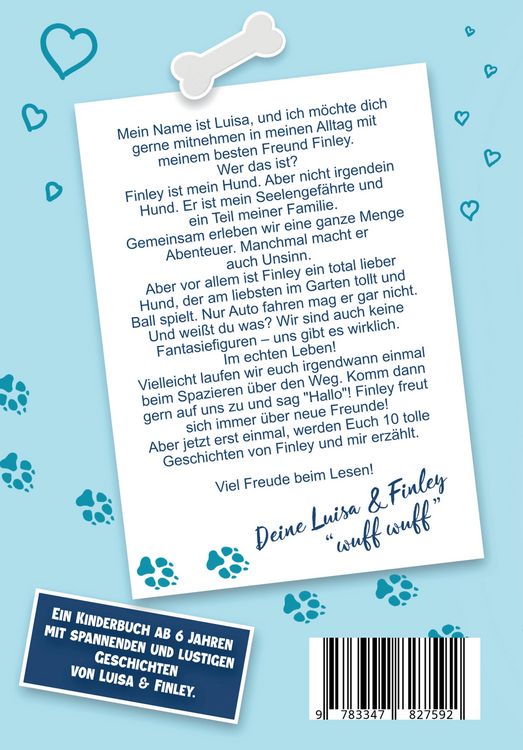 Mein Name ist Luisa, und ich möchte dich
gerne mitnehmen in meinen Alltag mit
meinem besten Freund Finley.
Wer das ist?
Finley ist mein Hund. Aber nicht irgendein
Hund. Er ist mein Seelengefährte und
ein Teil meiner Familie.
Gemeinsam erleben wir eine ganze Menge
Abenteuer. Manchmal macht er
auch Unsinn.
Aber vor allem ist Finley ein total lieber
Hund, der am liebsten im Garten tollt und
Ball spielt. Nur Auto fahren mag er gar nicht.
Und weißt du was? Wir sind auch keine
Fantasiefiguren – uns gibt es wirklich.
Im echten Leben!
Vielleicht laufen wir euch irgendwann einmal
beim Spazieren über den Weg. Komm dann
gern auf uns zu und sag "Hallo"! Finley freut
sich immer über neue Freunde!
Aber jetzt erst einmal, werden Euch 10 tolle
Geschichten von Finley und mir erzählt.
Viel Freude beim Lesen!
Deine Luisa & Finley
“wuff wuff”
Ein Kinderbuch ab 6 Jahren
mit spannenden und lustigen
Geschichten
von Luisa & Finley.
9 783347 827592